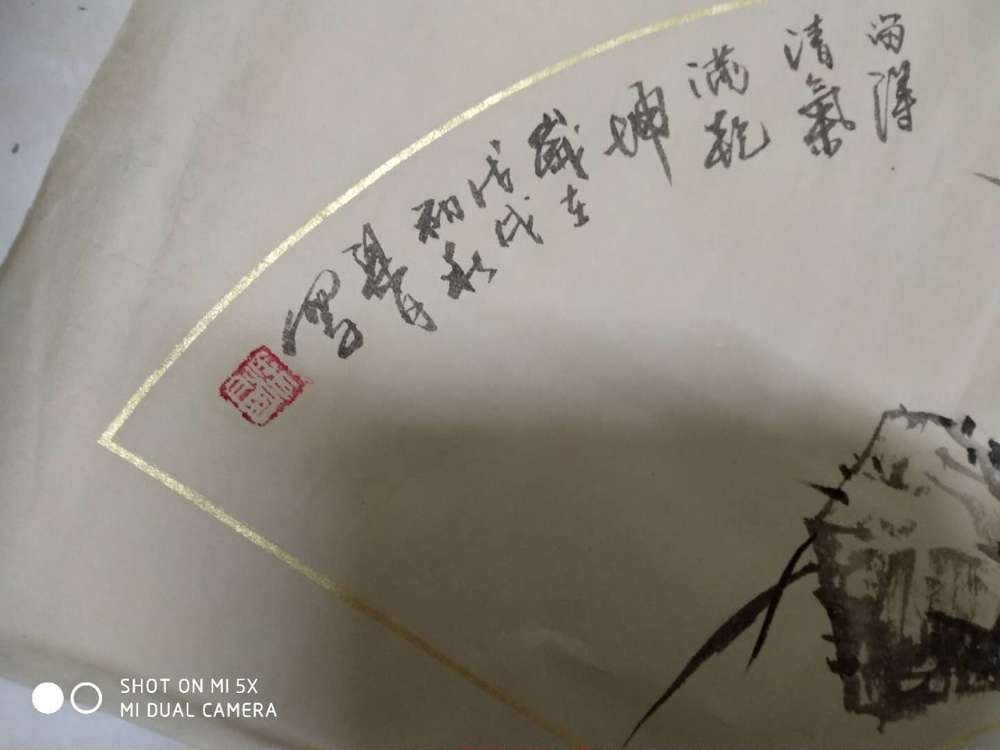 留得
清氣
滿乾
坤
歲在
戊戌
初秋
SHOT ON MI 5X
MI DUAL CAMERA